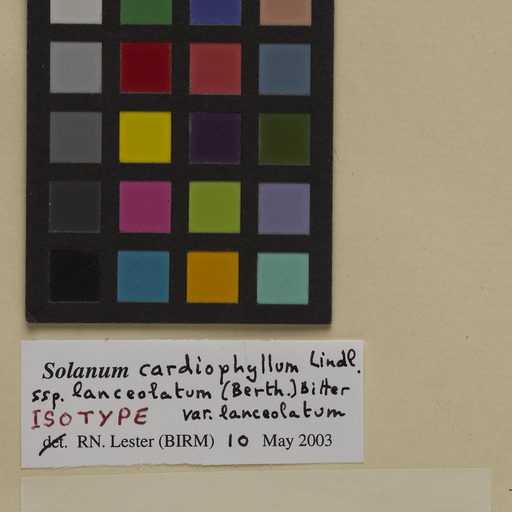 Solanum cardiophyllum Lindl.
ssp. lanceolatum (Berth.) Bitter
ISOTYPE var. lanceolatum
det. RN. Lester (BIRM) 10 May 2003